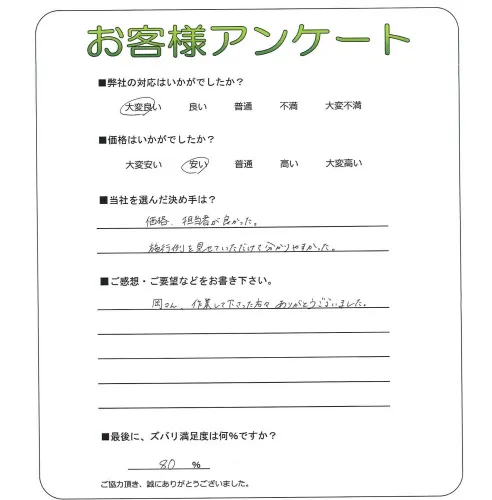 お客様アンケート
■弊社の対応はいかがでしたか？
大変良い 良い 普通 不満 大変不満
■価格はいかがでしたか？
大変安い 安い 普通 高い 大変高い
■当社を選んだ決め手は？
価格、担当者が良かった。
施行例を見せていただけて分かりやすかった。
■ご感想・ご要望などをお書き下さい。
岡さん、作業して下さった方々 ありがとうございました。
■最後に、ズバリ満足度は何%ですか？
80 %
ご協力頂き、誠にありがとうございました。